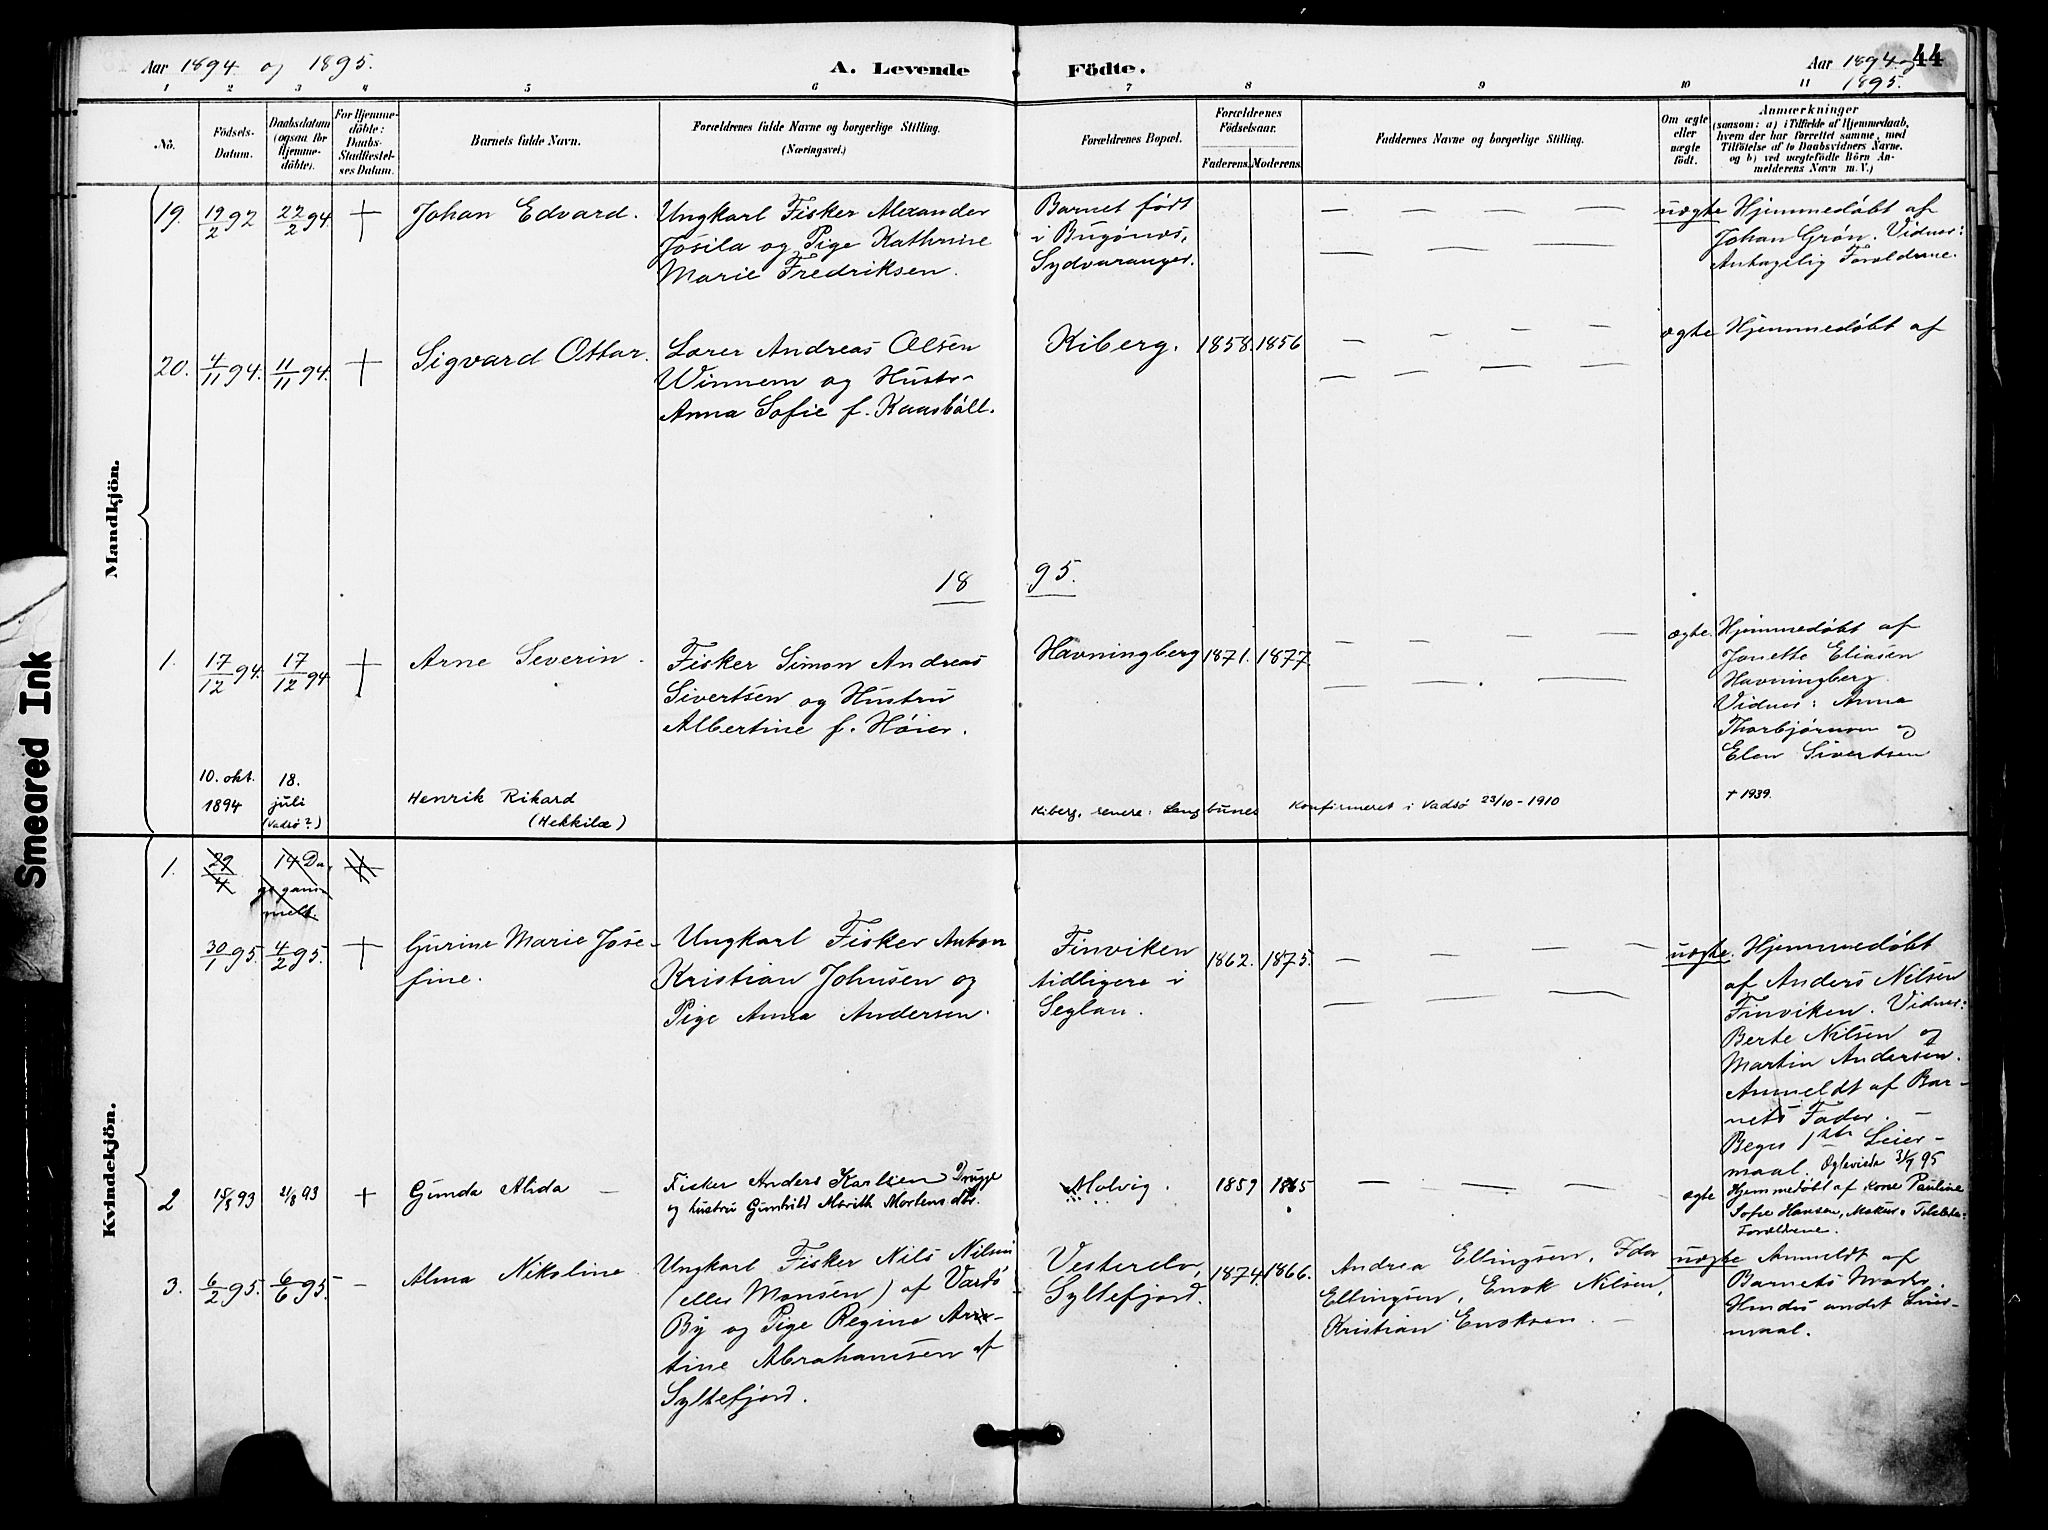 Aar 1894 og 1895.
A. Levende
Födte.
Aar 1894 og
1895.
44
1 2 3 4 5 6 7 8 9 10 11
Nö.
Födsels-
Datum.
Daabsdatum
(ogsaa for
Hjemme-
döbte).
For Hjemme-
döbte:
Daabs-
Stadfæstel-
ses Datum.
Barnets fulde Navn.
Forældrenes fulde Navne og borgerlige Stilling.
(Næringsvei.)
Forældrenes Bopæl.
Forældrenes
Födselsaar.
Faderens. Moderens.
Faddernes Navne og borgerlige Stilling.
Om ægte
eller
uægte
födt.
Anmærkninger
(saasom: a) i Tilfælde af Hjemmedaab,
hvem der har forrettet samme, med
Tilföielse af to Daabsvidners Navne,
og b) ved uægtefödte Börn An-
melderens Navn m. V.)
Mandkjön.
19. 19/2 92 22/2 94. + Johan Edvard.
Ungkarl Fisker Alexander
Josila og Pige Kathrine
Marie Fredriksen.
Barnet født
i Bugønes,
Sydvaranger.
uægte
Hjemmedøbt af
Johan Grøn. Vidner:
Antagelig Forældrene.
20. 4/11 94. 11/11 94. + Sigvard Ottar.
Lærer Andreas Olsen
Winnem og Hustr-
Anna Sofie f. Kaasböll.
Kiberg. 1858. 1856
ægte
Hjemmedøbt af
18 95.
1. 17/12 94. 17/12 94 + Arne Severin.
Fisker Simon Andreas
Sivertsen og Hustru
Albertine f. Høier.
Havningberg 1871. 1877
ægte.
Hjemmedøbt af
Jonette Eliasen
Havningberg.
Vidner: Anna
Thorbjørnsen og
Elen Sivertsen
10. okt.
1894
18.
juli
(Vadsö?)
Henrik Rikard
(Hekkilæ)
Kiberg, senere: Langbunes
Konfirmeret i Vadsö 23/10-1910
+ 1939.
Kvindekjön.
1. 29/4 14 Da-
ge gam-
melt.
30/1 95. 4/2 95. + Gurine Marie Jose-
fine.
Ungkarl Fisker Anton
Kristian Johnsen og
Pige Anna Andersen.
Finviken
tidligere i
Seglan.
1862. 1875.
uægte.
Hjemmedøbt
af Anders Nilsen
Finviken. Vidner:
Berte Nilsen og
Martin Andersen.
Anmeldt af Bar-
nets Fader.
Beges 1ste Leier-
maal.
2 15/8 93 21/8 93 + Gunda Alida
Fisker Anders Karlsen Drugge
og hustru Gunhild Marith Mortensdtr.
Molvig. 1859 1865
ægte
Hjemmedøbt af Kone Pauline
Sofie Hansen, Makur.
Forældrene.
3. 6/2 95. 6/6 95. - Alma Nikoline
Ungkarl Fisker Nils Nilsen
(eller Monsen) af Vardö
By og Pige Regine Ane-
tine Abrahamsen af
Syltefjord.
Vesterelv,
Syltefjord.
1874. 1866.
Andrea Ellingsen, Feder
Ellingsen, Enok Nilsen,
Kristian Enoksen.
uægte
Anmeldt af
Barnets Moder.
Hendes andet Leier-
maal.
Smeared Ink